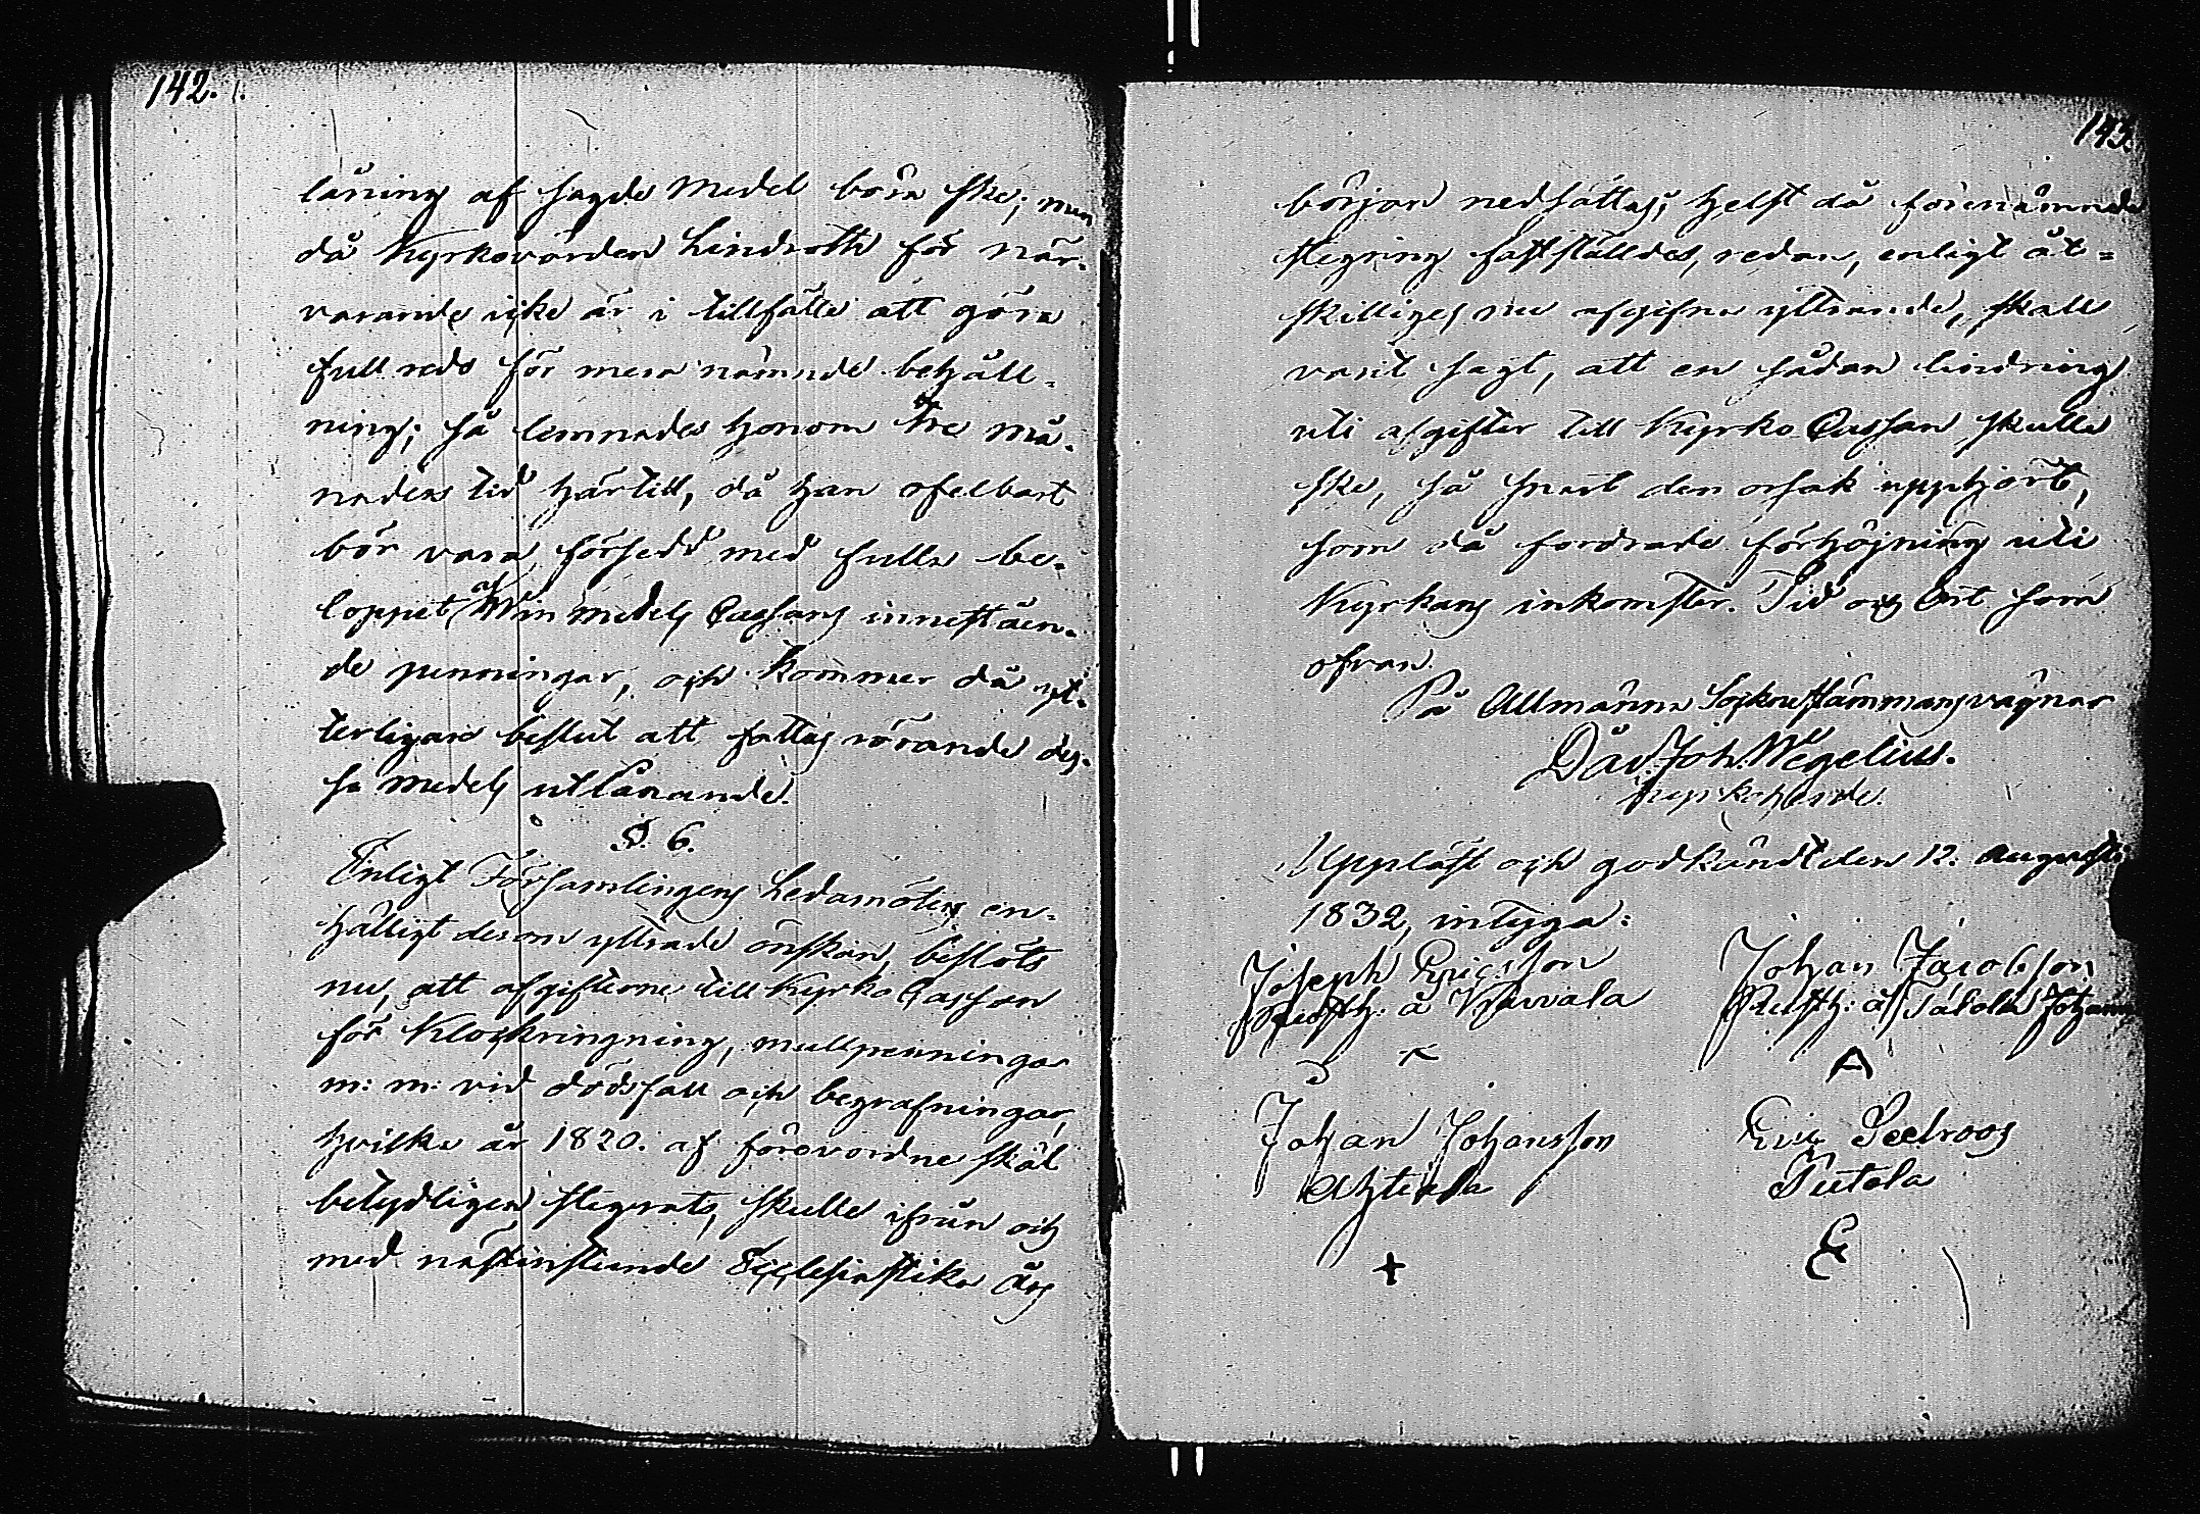 142.
låning af sagde Medel böra ske; men
då Kyrkovärden Lindroth för när-
varande icke är i tillfälle att göra
full redo för mera nämnde behåll-
ning; så lemnades honom tre må-
naders tid härtill, då han ofelbart
bör vara försedd med fulla be-
loppet af medels Cassans inneståen-
de penningar, och kommer då yt-
terligare beslut att fattas rörande des-
sa medels utlånande.
§. 6.
Enligt Församlingens Ledamöters en-
hälligt derom yttrade önskan, beslöts
nu, att afgifterne till Kyrko Cassan
för Klockringning, mullpenningar
m: m: vid dödsfall och begrafningar,
hvilka år 1820. af förevordne skäl
betydligen stegrats, skulle ifrån och
med nästinstundande Ecclesiastika års
143.
början nedsättas; helst då förenämnde
stegring fastställdes, redan, enligt åt-
skilliges nu afgifne yttrande, skall
varit sagt, att en sådan lindring
uti afgifter till Kyrko Cassan skulle
ske, så snart den orsak upphört,
som då fordrade förhöjning uti
Kyrkans inkomster. Tid och Ort som
ofvan.
På Allmänna Sockne Stämmans vägnar
Dav. Joh. Wegelius.
Kyrkoherde.
Uppläst och godkändt den 12. Augusti
1832, intyga:
Joseph Ericsson Johan Jacobsson
Rusth: å Rusth: å
A
Johan Johansson Eric Seelroos
Ahtiala Tutela
+ E